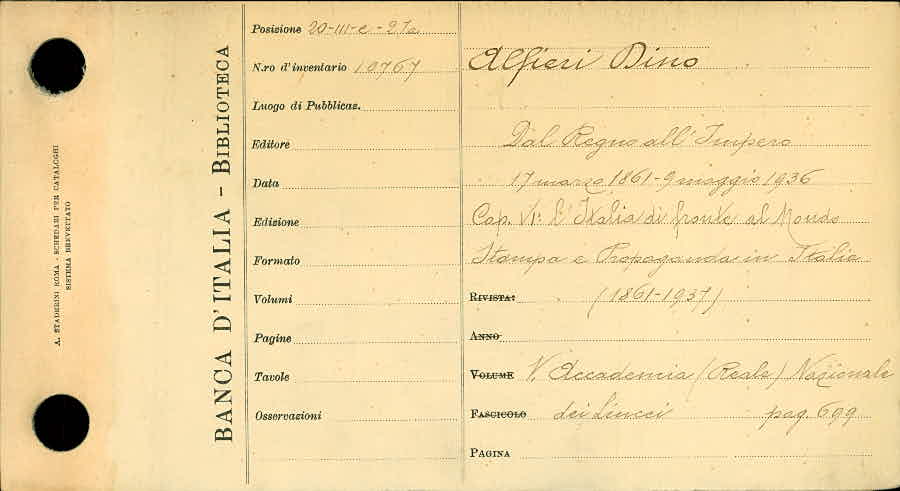 A. STADERINI ROMA - SCHEDARI PER CATALOGHI
SISTEMA BREVETTATO
BANCA D'ITALIA - BIBLIOTECA
Posizione 20-III-e-27a
N.ro d'inventario 10767
Luogo di Pubblicaz.
Editore
Data
Edizione
Formato
Volumi
Pagine
Tavole
Osservazioni
Alfieri Dino
Dal Regno all'Impero
17 marzo 1861-9 maggio 1936
Cap. VI: L'Italia di fronte al Mondo
Stampa e Propaganda in Italia
RIVISTA: (1861-1937)
ANNO
VOLUME V. Accademia (Reale) Nazionale
FASCICOLO dei Lincei pag. 699
PAGINA